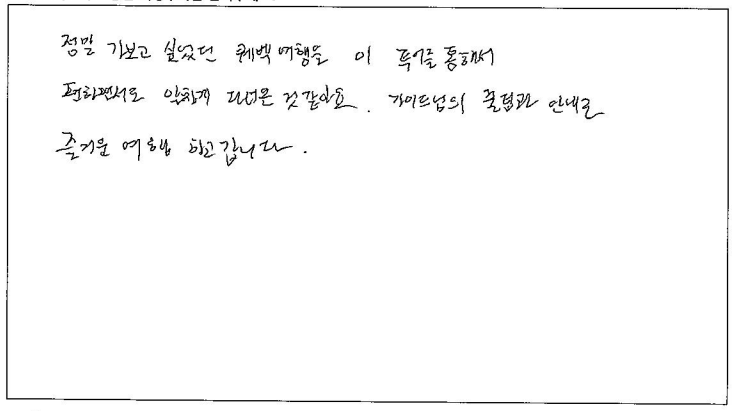 정말 가보고 싶었던 퀘벡 여행을 이 투어를 통해서
편하면서도 알차게 다녀온 것 같아요. 가이드님의 꿀팁과 안내로
즐거운 여행 하고 갑니다.